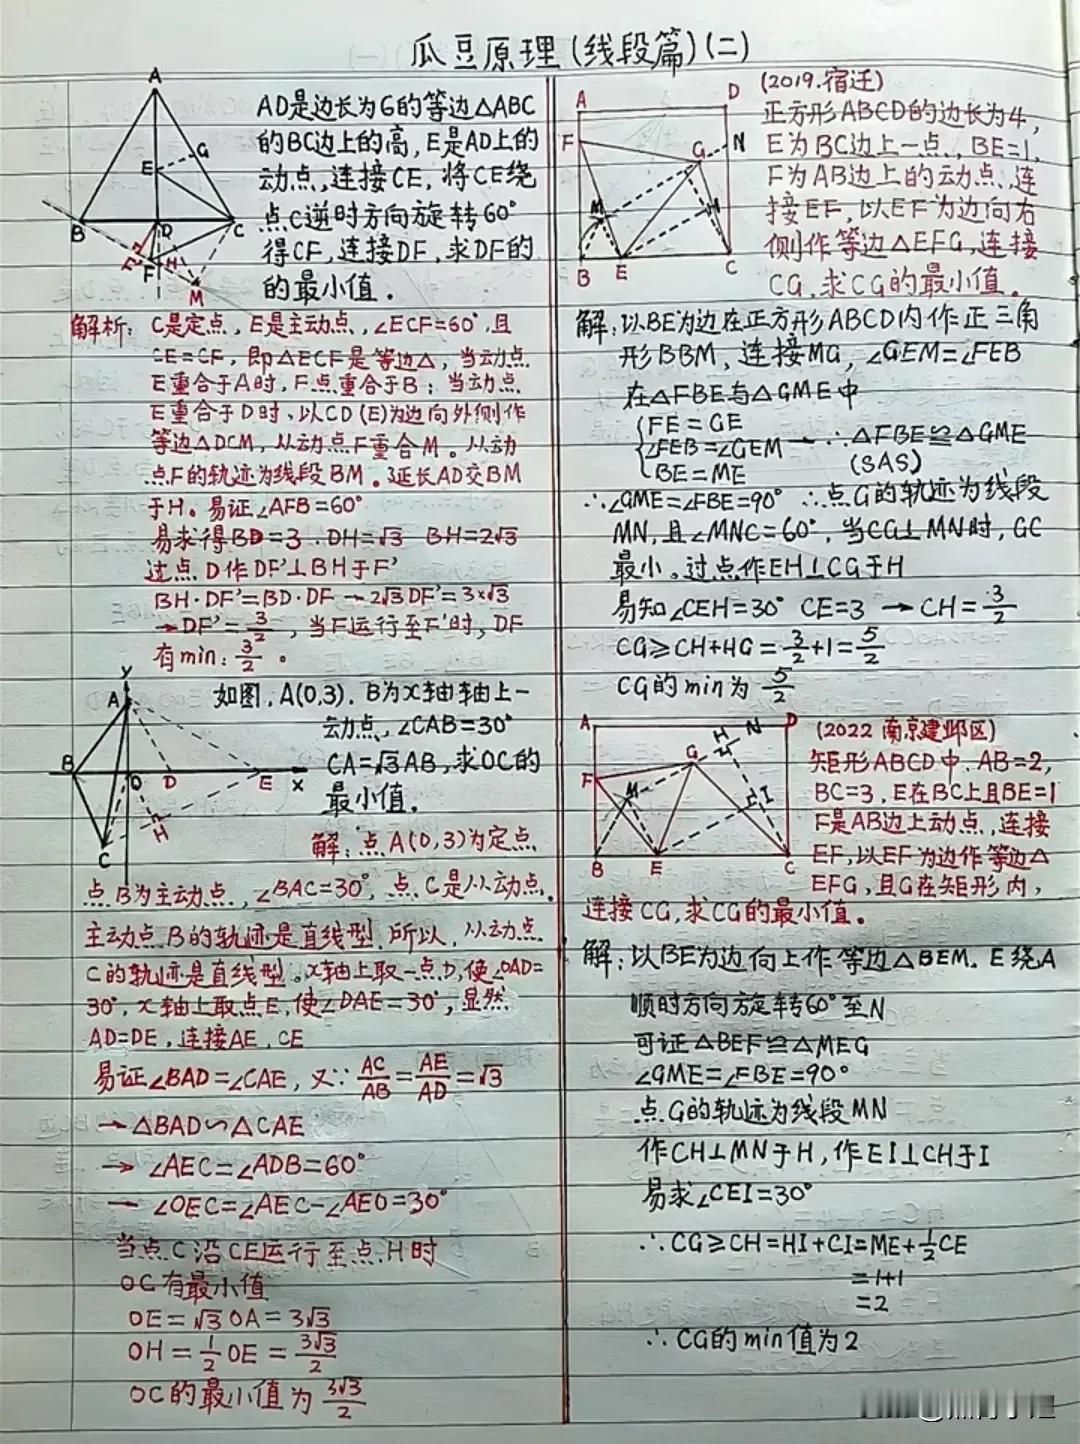 瓜豆原理(线段篇)(二)
A
E
G
B
D
C
F'
F
H
M
AD是边长为6的等边△ABC
的BC边上的高,E是AD上的
动点,连接CE,将CE绕
点C逆时方向旋转60°
得CF,连接DF,求DF的
的最小值.
解析:C是定点,E是主动点,∠ECF=60°,且
CE=CF,即△ECF是等边△,当动点
E重合于A时,F点重合于B;当动点
E重合于D时、以CD(E)为边向外侧作
等边△DCM,从动点F重合M。从动
点F的轨迹为线段BM。延长AD交BM
于H。易证∠AFB=60°
易求得BD=3.DH=√3 BH=2√3
过点D作DF'⊥BH于F'
BH·DF'=BD·DF→2√3DF'=3×√3
→DF'=3/2,当F运行至F'时,DF
有min:3/2。
y
A
B
O
D
E
x
H
C
如图,A(0,3).B为x轴轴上一
动点,∠CAB=30°
CA=√3AB,求OC的
最小值.
解:点A(0,3)为定点
点B为主动点,∠BAC=30°,点C是从动点.
主动点B的轨迹是直线型.所以,从动点
C的轨迹是直线型。x轴上取一点D,使∠OAD=
30°,x轴上取点E,使∠DAE=30°,显然
AD=DE,连接AE,CE
易证∠BAD=∠CAE,又∵AC/AB=AE/AD=√3
→△BAD∽△CAE
→∠AEC=∠ADB=60°
→∠OEC=∠AEC-∠AEO=30°
当点C沿CE运行至点H时
OC有最小值
OE=√3OA=3√3
OH=1/2OE=3√3/2
OC的最小值为3√3/2
A
D
F
G
N
M
H
B
E
C
(2019.宿迁)
正方形ABCD的边长为4,
E为BC边上一点,BE=1,
F为AB边上的动点,连
接EF,以EF为边向右
侧作等边△EFG,连接
CG,求CG的最小值.
解:以BE为边在正方形ABCD内作正三角
形BBM,连接MG,∠GEM=∠FEB
在△FBE与△GME中
{FE=GE
∠FEB=∠GEM→∴△FBE≌△GME
BE=ME (SAS)
∴∠GME=∠FBE=90° ∴点G的轨迹为线段
MN,且∠MNC=60°,当CG⊥MN时,GC
最小。过点作EH⊥CG于H
易知∠CEH=30° CE=3→CH=3/2
CG≥CH+HG=3/2+1=5/2
CG的min为5/2
A
D
H
N
G
F
M
I
B
E
C
(2022南京建邺区)
矩形ABCD中.AB=2,
BC=3,E在BC上且BE=1
F是AB边上动点,连接
EF,以EF为边作等边△
EFG,且G在矩形内,
连接CG,求CG的最小值。
解:以BE为边向上作等边△BEM.E绕A
顺时方向旋转60°至N
可证△BEF≌△MEG
∠GME=∠FBE=90°
点G的轨迹为线段MN
作CH⊥MN于H,作EI⊥CH于I
易求∠CEI=30°
∴CG≥CH=HI+CI=ME+1/2CE
=1+1
=2
∴CG的min值为2